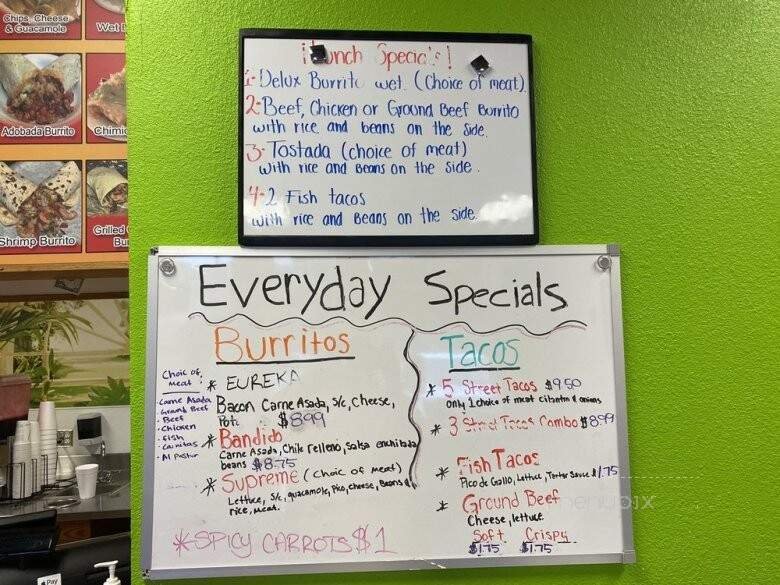 Chips, Cheese
& Guacamole
Wet
Adobada Burrito
Shrimp Burrito
Grilled
Lunch Specials!
1- Delux Burrito wet. (Choice of meat).
2- Beef, Chicken or Ground Beef Burrito
with rice and beans on the side.
3- Tostada (choice of meat)
with rice and Beans on the side.
4- 2 Fish tacos
with rice and Beans on the side.
Everyday Specials
Burritos
Choic of
Meat :
- Carne Asada
- Ground Beef
- Beef
- Chicken
- Fish
- Carnitas
- Al Pastor
* EUREKA
Bacon Carne Asada, S/c, cheese,
Pot. $8.99
* Bandido
Carne Asada, Chile relleno, Salsa enchilada
beans $8.75
* Supreme (choic of meat)
Lettuce, S/c, guacamole, Pico, cheese, Beans &
rice, meat.
*SPICY CARROTS $1
Tacos
* 5 Street Tacos $9.50
Only 1 choice of meat cilantro & onions
* 3 Street Tacos Combo $8.99
* Fish Tacos
Pico de Gallo, Lettuce, Tartar Sauce $1.75
* Ground Beef
Cheese, lettuce.
Soft Crispy
$1.75 $1.75
Pay